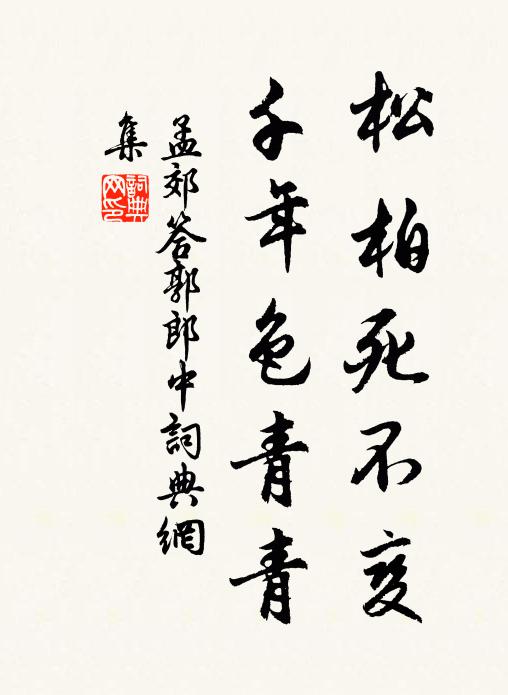 松柏死不变
千年色青青
孟郊答郭郎中詞典網
集
詞典
网印